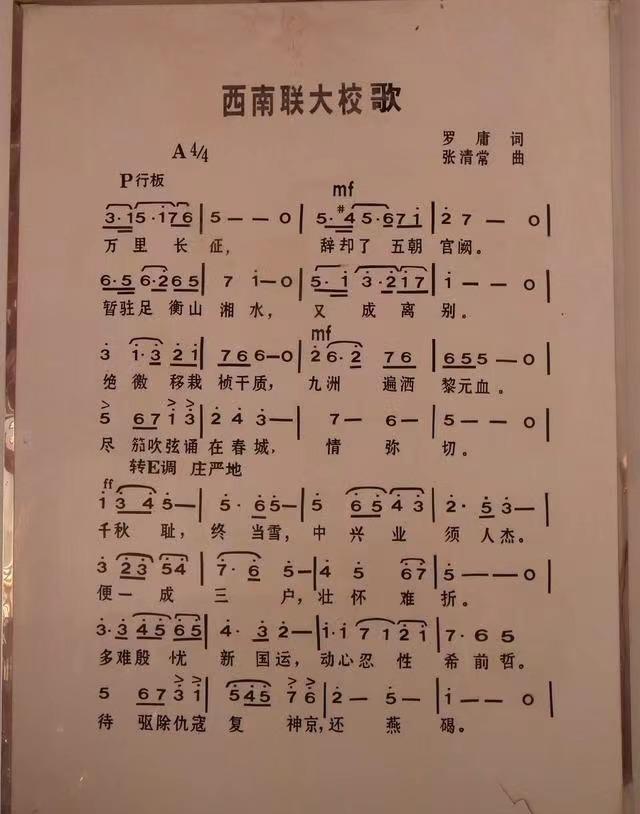 西南联大校歌
A 4/4
罗庸 词
张清常 曲
P行板
mf
3·15·176|5——0|5·#45·671|27—0|
万里长征， 辞却了五朝官阙。
6·56·265|71—0|5·13·217|1——0|
暂驻足衡山湘水，又成离别。
mf
31·321|766—0|26·276|655—0|
绝徼移栽桢干质，九洲遍洒黎元血。
>>>
56713|243—|7—6—|5——0|
尽笳吹弦诵在春城，情弥切。
转E调 庄严地
ff
1345—|5·65—|56543|2·53—|
千秋耻，终当雪，中兴业须人杰。
32354|7·65—|4567|5——0|
便一成三户，壮怀难折。
3·34565|4·32—|1·17121|7·65
多难殷忧新国运，动心忍性希前哲。
>>>>
56731|54576|2—5—|1——0|
待驱除仇寇复神京，还燕碣。